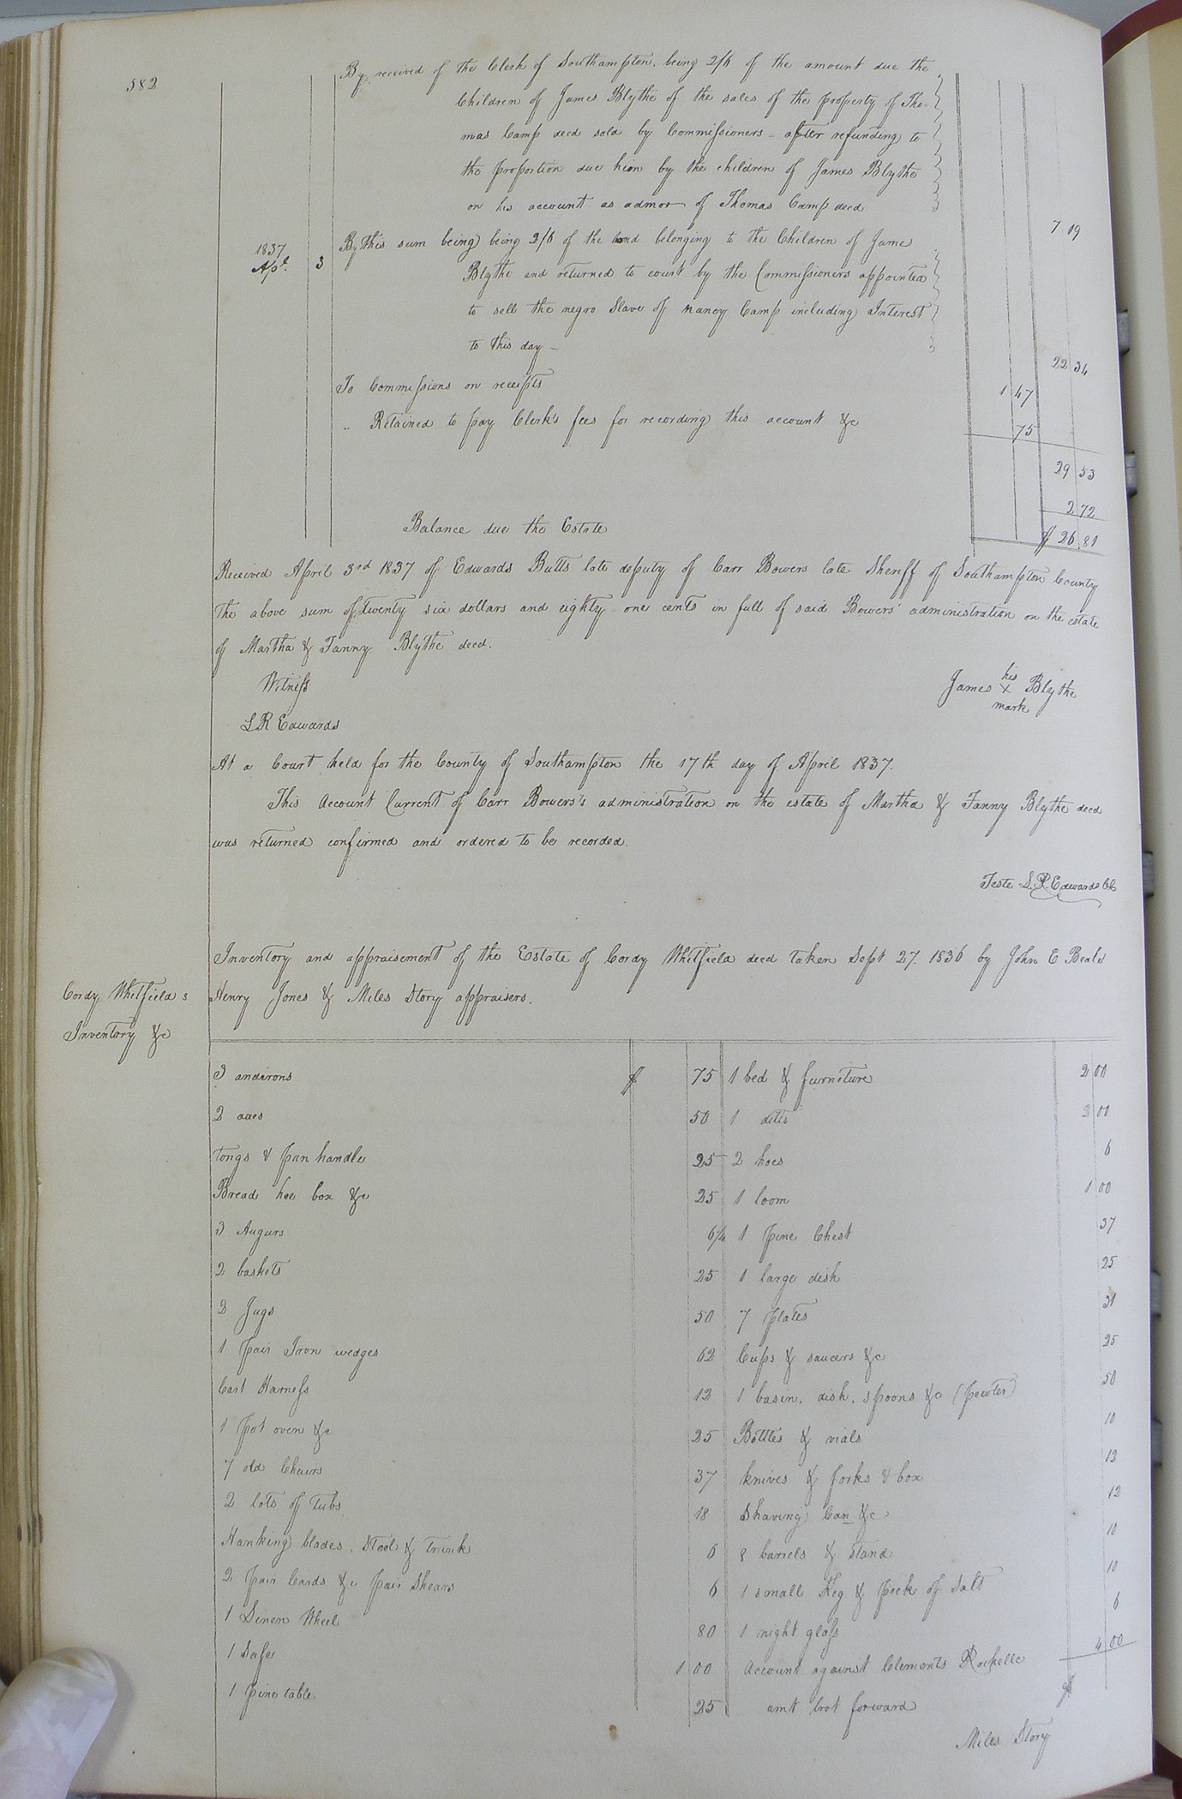 582
By received of the Clerk of Southampton, being 2/6 of the amount due the
Children of James Blythe of the sales of the property of Tho-
mas Camp decd sold by Commissioners - after refunding to
the proportion due him by the children of James Blythe
on his account as admor of Thomas Camp decd 7 19
1837 Apl. 3 By this sum being being 2/6 of the bond belonging to the Children of Jame
Blythe and returned to court by the Commissioners appointed
to sell the negro Slave of Nancy Camp including Interest
to this day - 22 34
To Commissions on receipts 1 47
" Retained to pay Clerk's fees for recording this account &c 75
29 53
2 72
Balance due the Estate $ 26.81
Received April 3rd 1837 of Edwards Butts late deputy of Carr Bowers late Sheriff of Southampton County
the above sum of twenty six dollars and eighty-one cents in full of said Bowers' administration on the estate
of Martha & Fanny Blythe decd.
Witness
James his X mark Blythe
L R Edwards
At a Court held for the County of Southampton the 17th day of April 1837.
This Account Current of Carr Bowers's administration on the estate of Martha & Fanny Blythe decd
was returned confirmed and ordered to be recorded.
Teste L. R. Edwards Clk
Cordy Whitfield s
Inventory &c
Inventory and appraisement of the Estate of Cordy Whitfield decd taken Sept 27. 1836 by John E Beale
Henry Jones & Miles Story appraisers.
3 andirons $ 75 1 bed & furniture 2 00
2 axes 50 1 ditto 2 00
tongs & pan handle 25 2 hoes 6
Bread hoe box &c 25 1 loom 1 00
3 Augurs 6¼ 1 pine Chest 37
2 baskets 25 1 large dish 25
2 Jugs 50 7 plates 31
1 pair Iron wedges 62 Cups & saucers &c 25
Cart Harness 12 1 basin, dish, spoons &c (pewter) 50
1 pot oven &c 25 Bottles & vials 10
7 old Chairs 37 knives & forks & box 12
2 lots of tubs 18 Shaving Can &c 12
Hanking blades, Stool & trunk 6 8 barrels & stand 10
2 pair Cards &c pair Shears 6 1 small Keg & peck of Salt 10
1 Linen Wheel 80 1 night glass 6
1 Safe 1 00 Account against Clements Rochelle 4 00
1 pine table 25 amt brot forward $
Miles Story